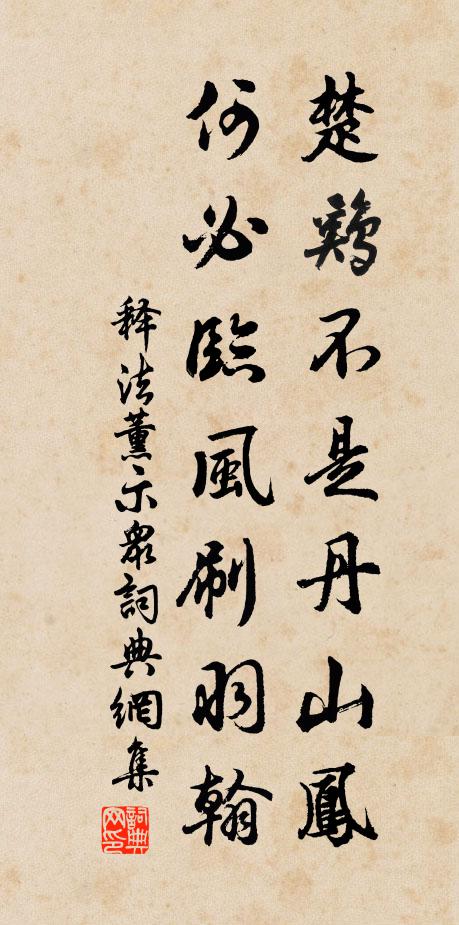 楚鷄不是丹山鳳
何必臨風刷羽翰
释法薰示衆詞典網集
詞典网印